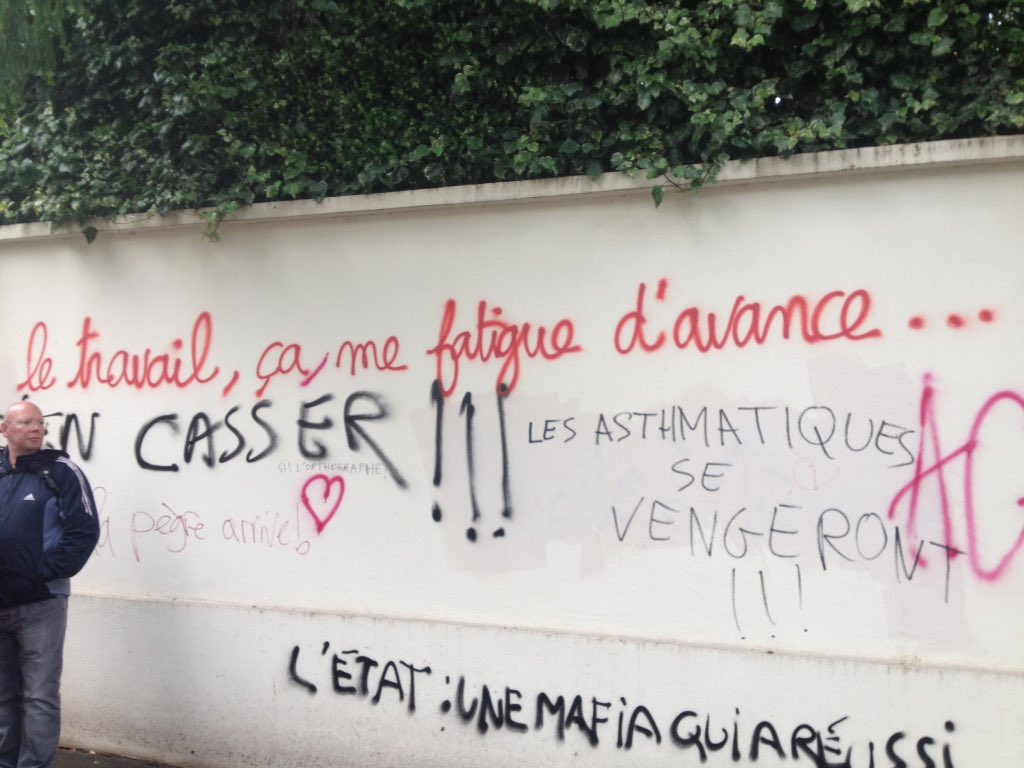 le travail, ça, me fatigue d'avance...
EN CASSER !!!
SI! L'ORTHOGRAPHE!
la pègre arrive!
LES ASTHMATIQUES
SE
VENGERONT
!!!
AC
L'ÉTAT : UNE MAFIA QUI A RÉUSSI
adidas